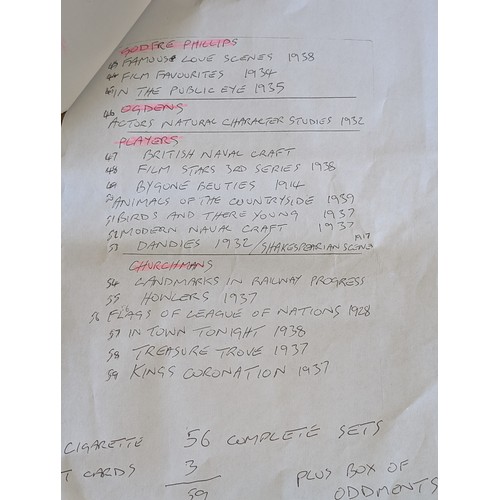 GODFRE PHILLIPS
43 FAMOUS LOVE SCENES 1938
44 FILM FAVOURITES 1934
45 IN THE PUBLIC EYE 1935
46 OGDENS
ACTORS NATURAL CHARACTER STUDIES 1932
PLAYERS
47 BRITISH NAVAL CRAFT
48 FILM STARS 3RD SERIES 1938
49 BYGONE BEUTIES 1914
50 ANIMALS OF THE COUNTRYSIDE 1939
51 BIRDS AND THERE YOUNG 1937
52 MODERN NAVAL CRAFT 1937
53 DANDIES 1932 / SHAKESPEARIAN SCENE 1917
CHURCHMANS
54 LANDMARKS IN RAILWAY PROGRESS
55 HOWLERS 1937
56 FLAGS OF LEAGUE OF NATIONS 1928
57 IN TOWN TONIGHT 1938
58 TREASURE TROVE 1937
59 KINGS CORONATION 1937
CIGARETTE 56 COMPLETE SETS
T CARDS 3 PLUS BOX OF
59 ODDMENTS